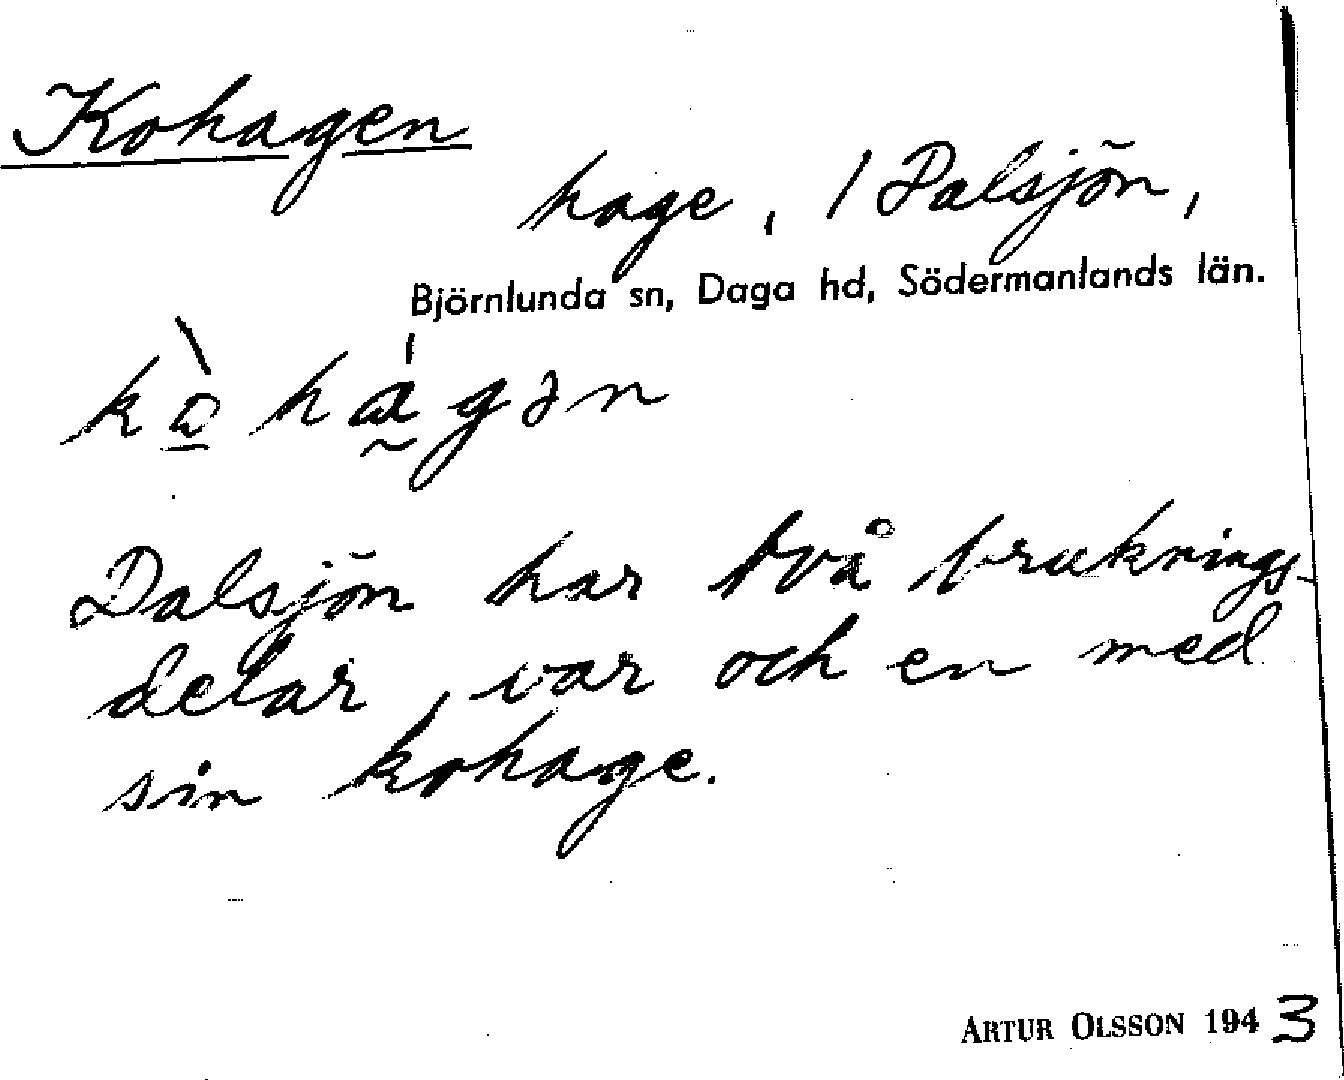 Kohagen
hage, / Dalsjön,
Björnlunda sn, Daga hd, Södermanlands län.
kɷ̠̀ hɑ̰́gən
Dalsjön har två bruknings-
delar, var och en med
sin kohage.
ARTUR OLSSON 1943